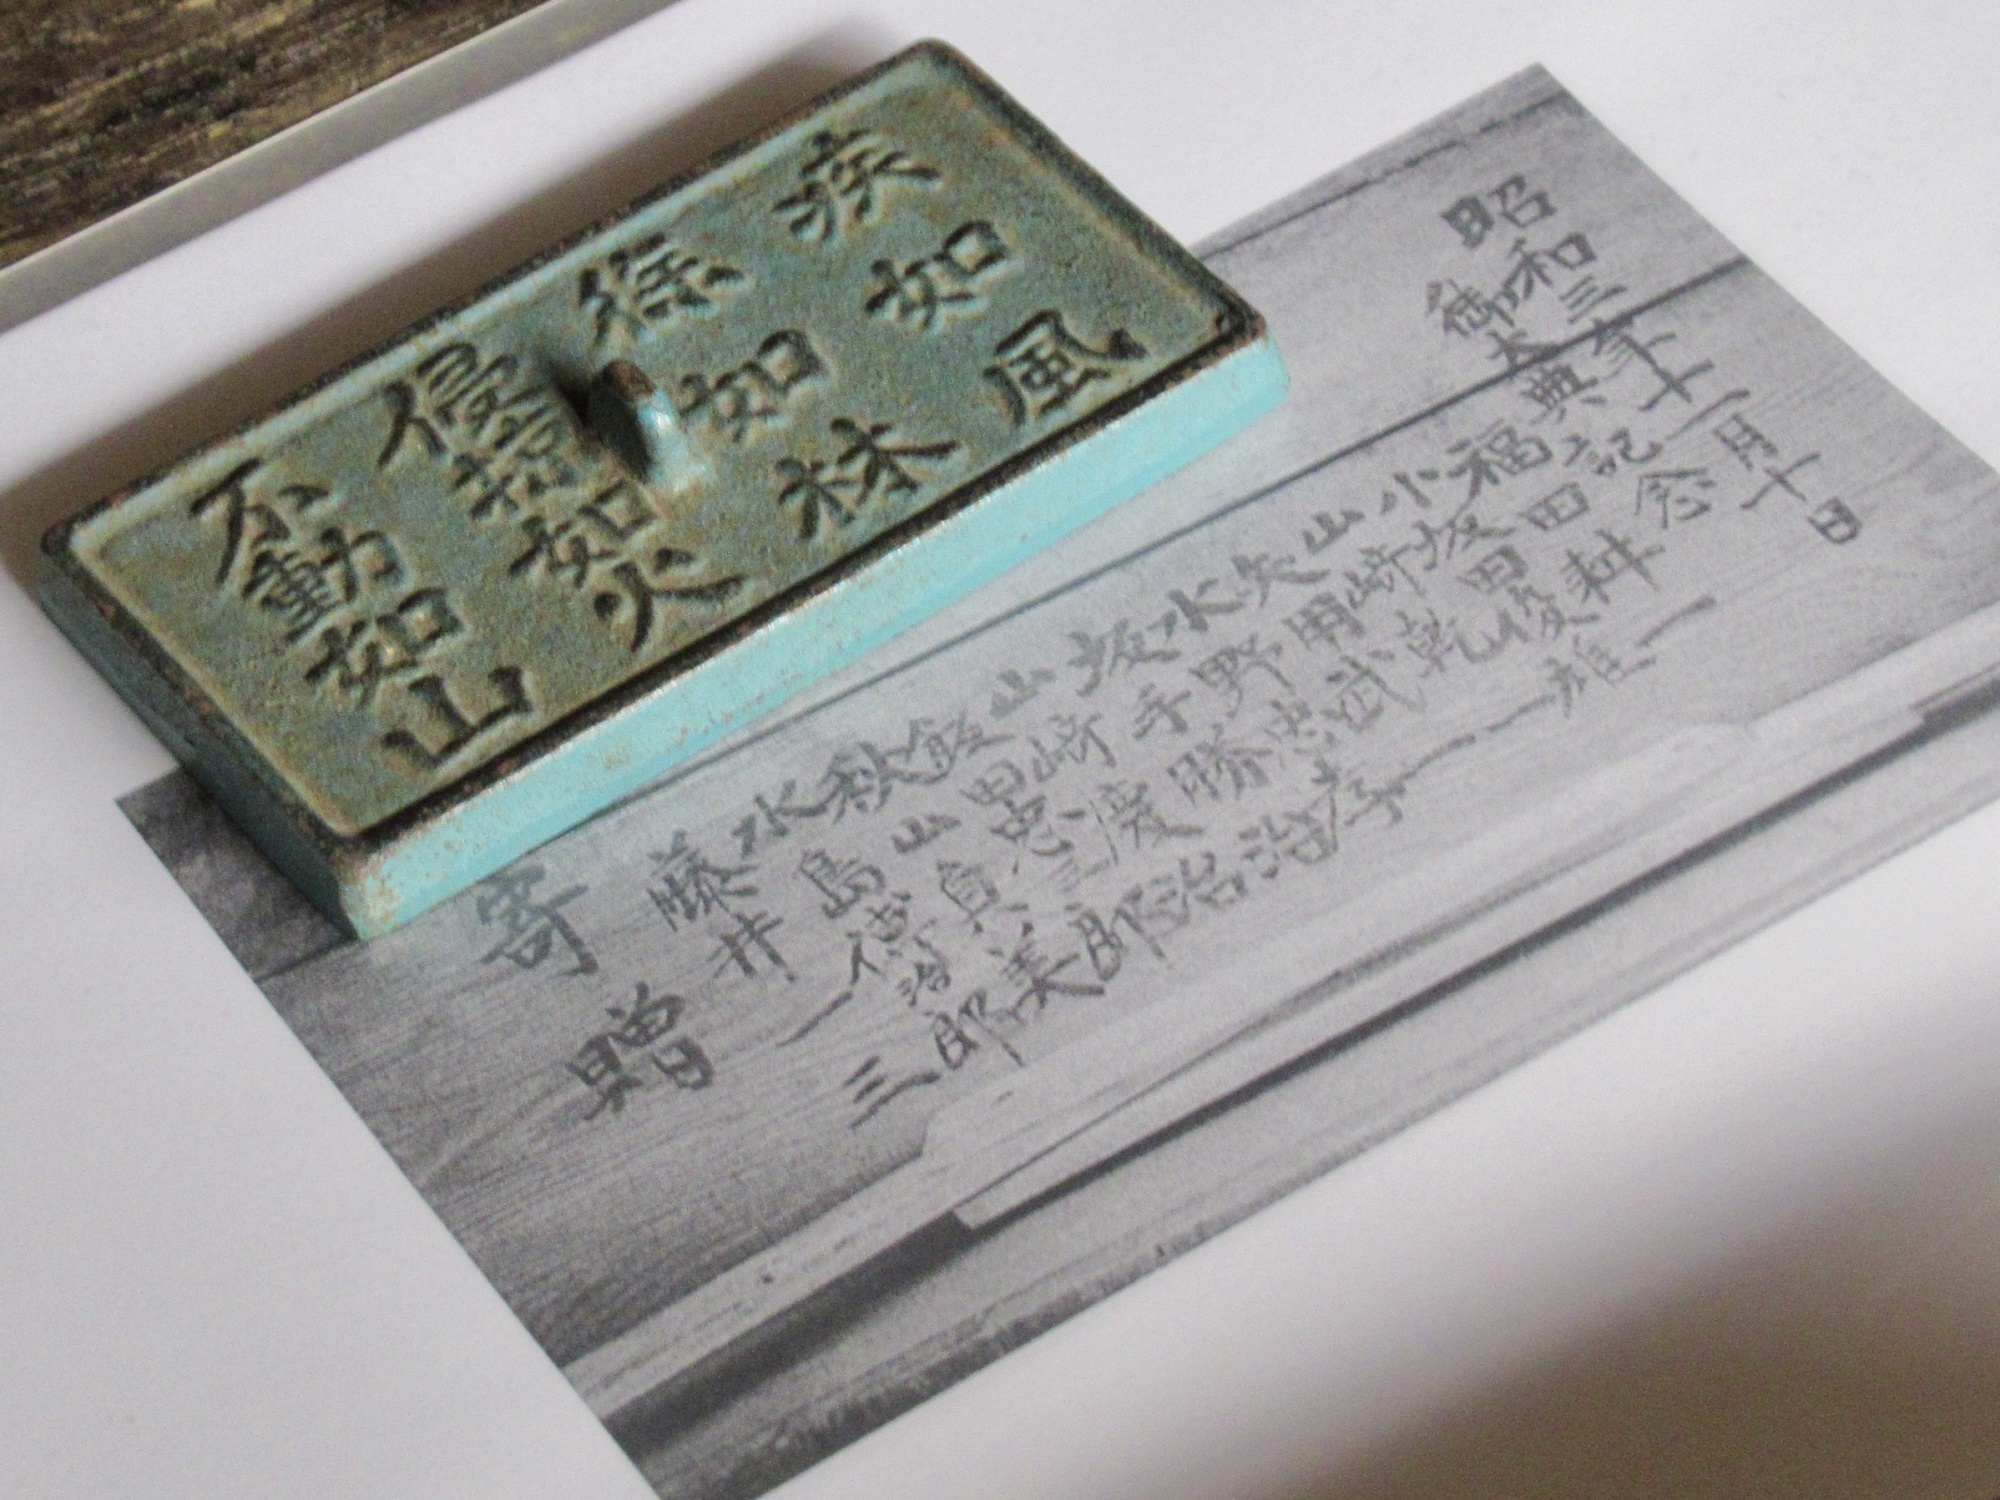 疾如風
徐如林
侵掠如火
不動如山
昭和三年十一月十日
御大典記念
福田耕一
小坂田俊雄
山崎乾一
武一
水野忠孝
坂手勝治
山崎慶治
忠三郎
秋山眞美
水島傳治郎
藤井一三
寄贈